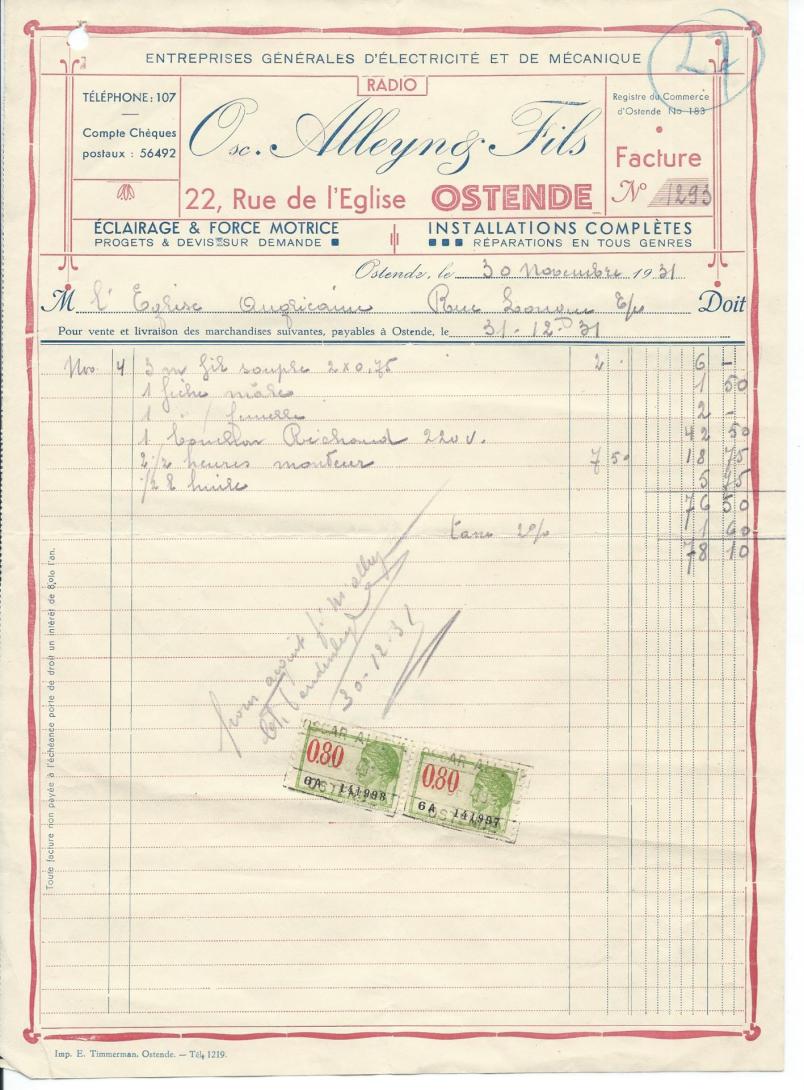 27
ENTREPRISES GÉNÉRALES D'ÉLECTRICITÉ ET DE MÉCANIQUE
RADIO
TÉLÉPHONE: 107
Compte Chèques
postaux : 56492
Osc. Alleyn & Fils
22, Rue de l'Eglise OSTENDE
Registre du Commerce
d'Ostende No 183
Facture
No 1293
ÉCLAIRAGE & FORCE MOTRICE
PROGETS & DEVIS SUR DEMANDE
INSTALLATIONS COMPLÈTES
RÉPARATIONS EN TOUS GENRES
Ostende, le 30 Novembre 1931
M l'Eglise Anglicaine Rue E/v Doit
Pour vente et livraison des marchandises suivantes, payables à Ostende, le 31-12-31
Nov. 4 3 m fil souple 2x0,75 2 - 6 -
1 fiche mâle 1 50
1 " femelle 2 -
1 Bouillon Richaud 220 v. 42 50
2 1/2 heures monteur 7 50 18 75
1/2 l huile 5 75
76 50
taxe 2% 1 60
78 10
pour acquit
30-12-31
OSCAR OSCAR
0.80 0.80
6A 141998 6A 141997
OSTENDE OSTENDE
Toute facture non payée à l'échéance porte de droit un intérêt de 8 o/o l'an.
Imp. E. Timmerman, Ostende. — Tél. 1219.